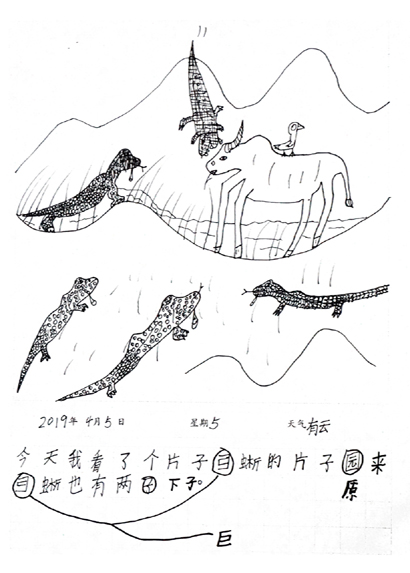 2019年 4月5日 星期5 天气有云
今天我看了个片子蜥的片子园来
蜥也有两子下子。
原
巨